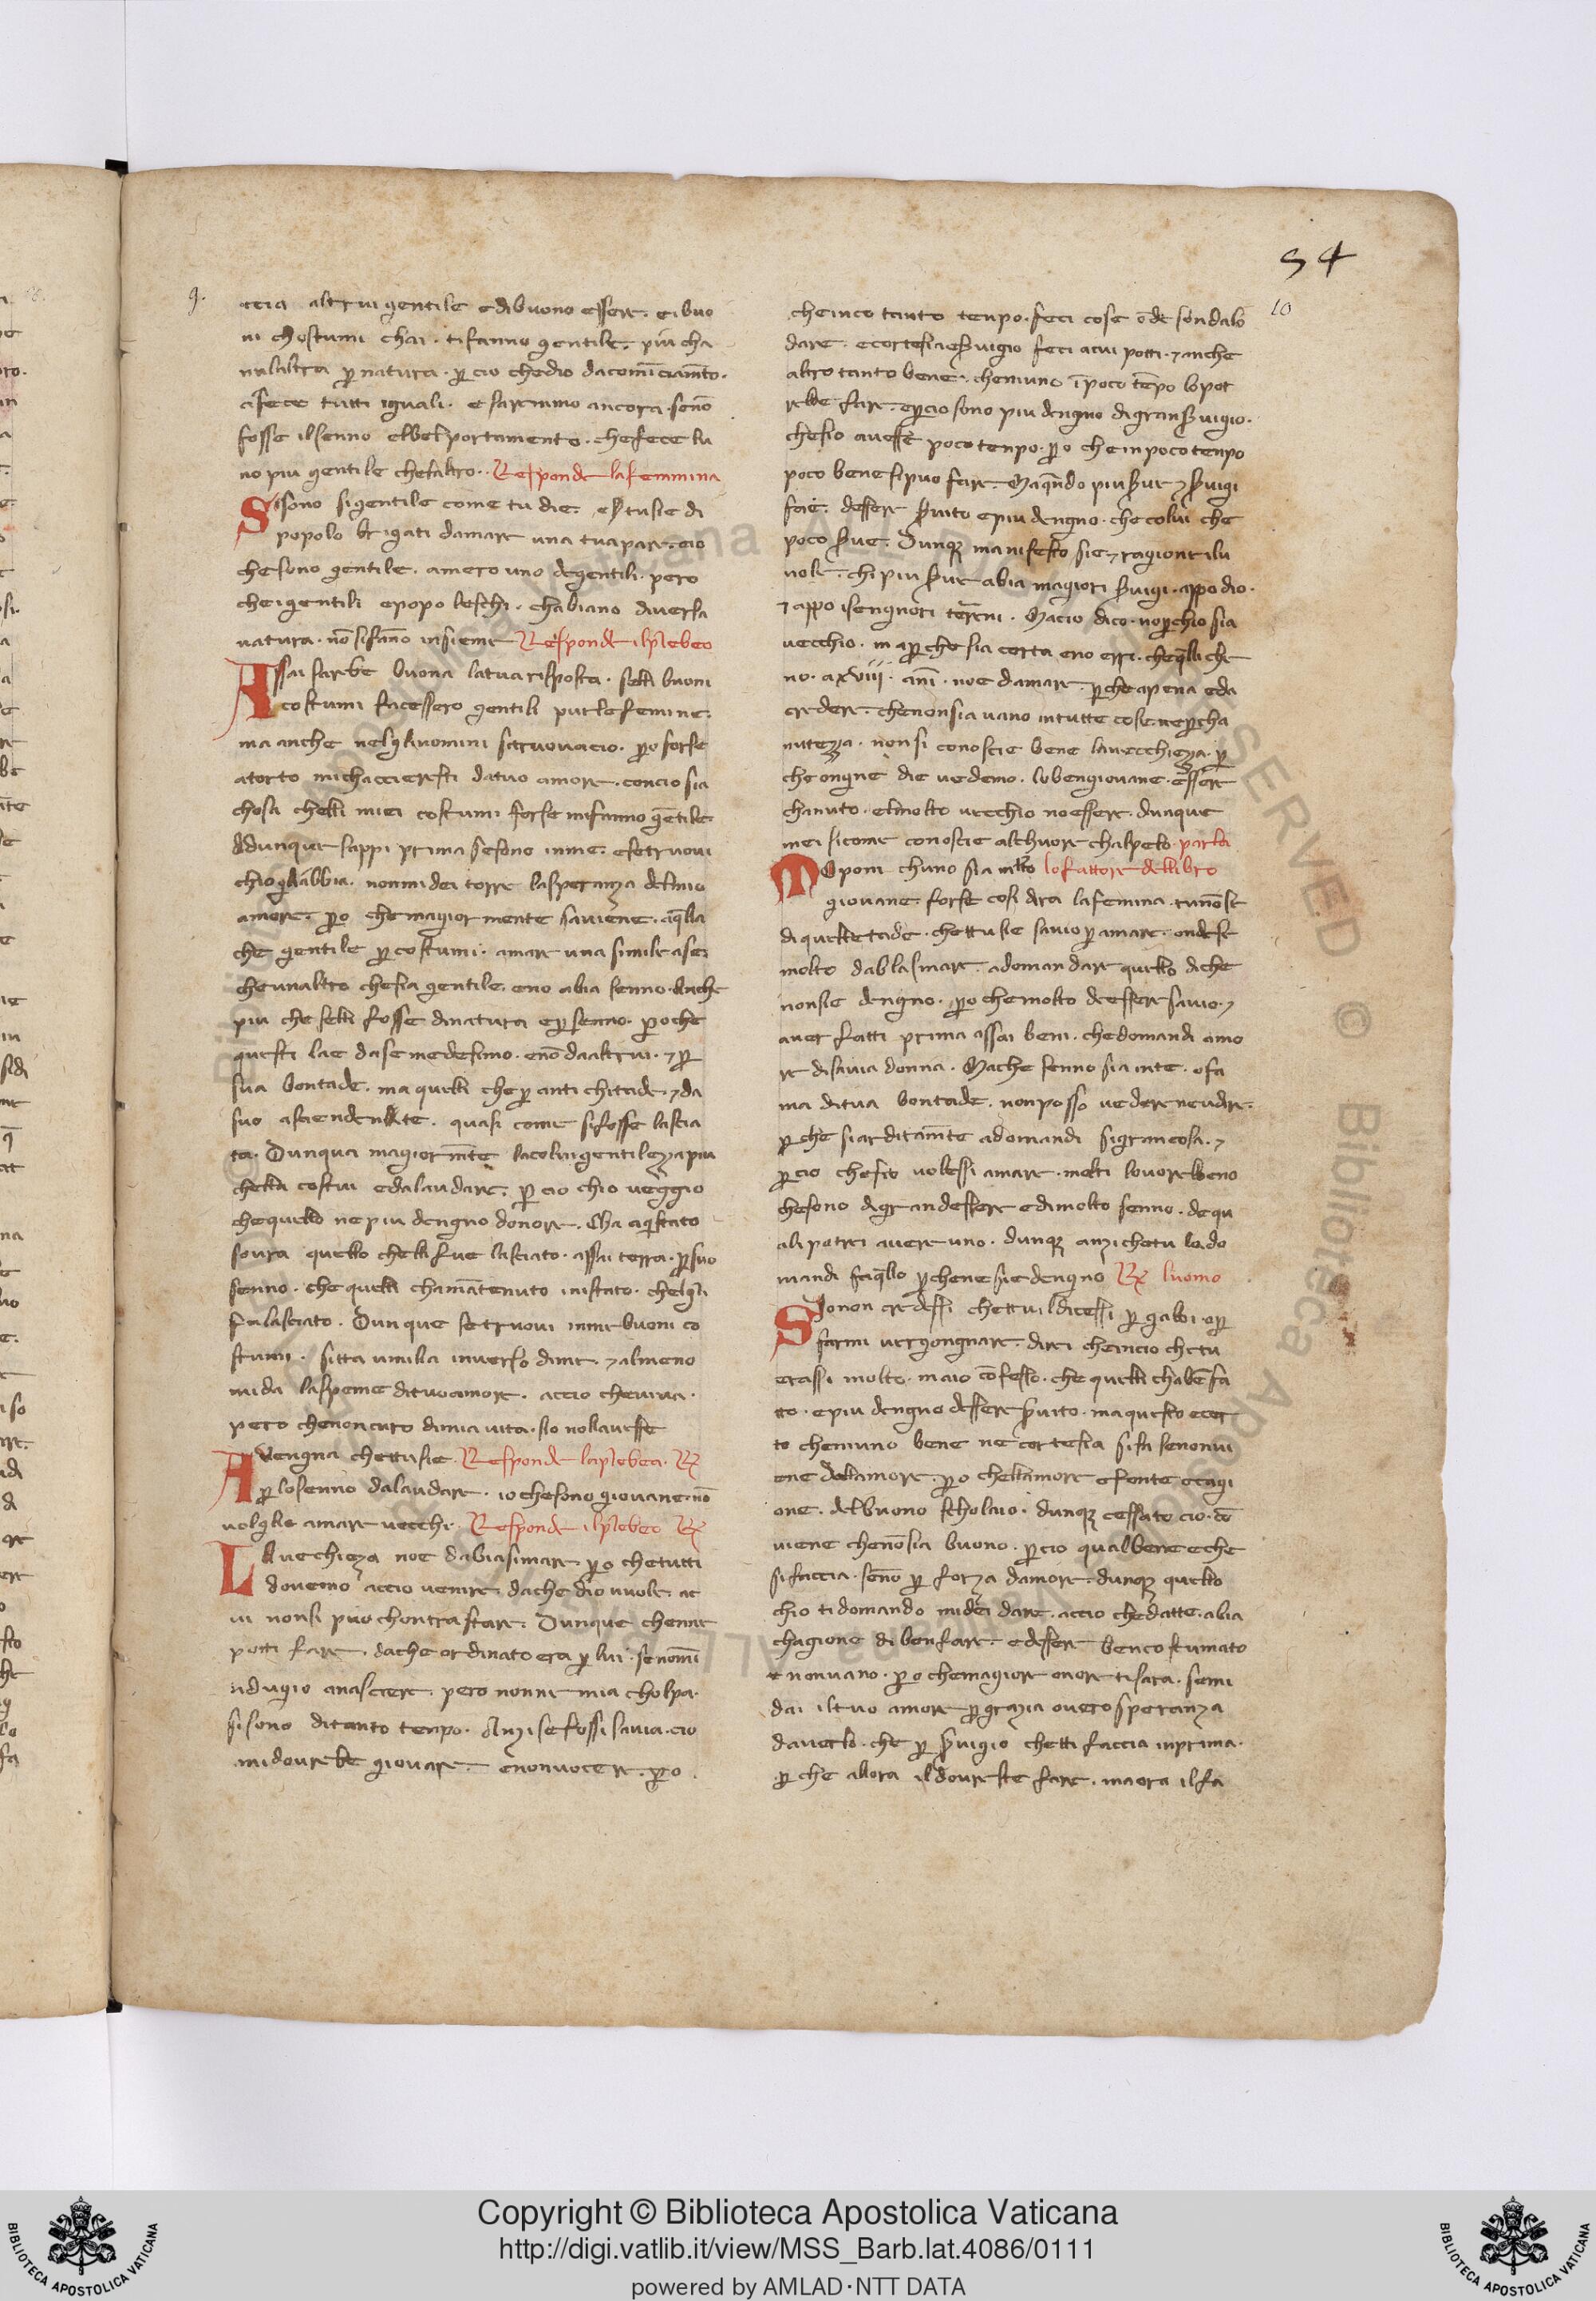 54
9.
10
ccia altrui gentile e di buono essere. ei buo
ni chostumi chai. ti fanno gentile. piu cha
nulaltra per natura. per cio chedio dacominciamto.
cifece tutti iguali. e saremmo ancora. senō
fosse ilsenno elbel portamento. chefece lu
no piu gentile chelaltro. Responde lafemmina
Sisono sigentile come tu die. e settusie di
popolo brigati damare una tuapare. cio
chesono gentile. amero uno degentili. pero
cheigentili epopoleschi. chabiano diversa
natura. nō sifāno insieme Responde ilplebeo
Assai sarebe buona latua risposta. selli buoni
costumi facessero gentili pur le femine.
ma anche nelgliuomini si truovacio. po forse
atorto michaccieresti datuo amore. concio sia
chosa chelli miei costumi forse mifanno gētile.
Adunque sappi prima sesono inme. esetruovi
chioglabbia. nonmi dei torre lasperanza delmio
amore. po che magior mente saviene. aqlla
che gentile per costumi. amare una simile ase.
cheunaltro chesia gentile. eno abia senno. Anche
piu che selli fosse dinatura epsenno. poche
questi lae dase medesimo. enō daaltrui. 7 per
sua bontade. ma quelli che per antichitade. 7 da
suo asciendente. quasi come sifosse lascia
ta. Dunqua magiormēte lacolui gentileza piu
chella costui edalaudare. per cio chio veggio
chequello ne piu dengno donore. Cha aqistato
soura quello chelli fue lasciato. assai terra. persuo
senno. che quelli chamātenuto instato. chelgli
fulasciato. Dunque setruovi inme buoni co
stumi. sitta umilia inverso dime. 7 almeno
mida laspeme dituoamore. accio cheviva.
pero chenoncuro dimia vita. sio nollavesse
Avengna chettusie. Responde laplebea. Rx
per losenno dalaudare. io chesono giovane. nō
volglie amare vecchi. Responde ilplebeo Rx
La vechieza noe dabiasimare. po chetutti
dovemo accio venire. dache dio vuole. ac
ui nonsi puo chontrastare. Dunque cheme
potti fare. dache ordinato era per lui. senomi
indugio anascere. pero nonne mia cholpa.
sisono ditanto tenpo. Anzi sefossi savia. cio
midovrebe giovare. enonnocere. po
cheinco tanto tenpo. feci cose ōde sondalō
dare. ecortesia eservigio feci acui potti. 7 anche
altro tanto bene. cheniuno ī poco tēpo lo pot
rebbe fare. epercio sono piu dengno digranservigio.
chesio avesse poco tenpo. po che inpoco tenpo
poco bene sipuo fare. Maqndo piu serve 7 servigi
faie. dessere servito epiu dengno. checolui che
poco serve. Dunqz manifesto sie 7 ragionevilu
vole. chi piu serve abia magiori servigi. appo dio.
7 appo isengnori terreni. Macio dico. noperchio sia
vecchio. ma perche sia certa eno erri. cheqlli che
no. axviii. anī. noe damare. perche apena eda
credere. chenonsia vano intutte cose. neper cha
nuteza. nonsi conoscie bene lavecchieza. per
che ongne die vedemo. lobengiovane. essere
chanuto. elmolto vecchio noessere. dunque
mei sicome conoscie alchuore chalpelo. parla
Mo poni chuno sia molto lofattore dellibro
giovane. forse cosi dira lafemina. tunōse
di quelletade. chettusie savio per amare. ondese
molto dablasmare. adomandare quello diche
nonsie dengno. po chemolto deessere savio. 7
aver fatti prima assai beni. chedomandi amo
re disavia donna. Mache senno sia inte. ofa
ma ditua bontade. nonposso vedere neudire.
perche siarditamēte adomandi sigrancosa. 7
percio chesio volessi amare. molti lovorebbeno
chesono digrandessere edimolto senno. dequ
ali potrei avere uno. dunqz anzi chetu lodo
mandi faqllo perchene sie dengno Rx luomo
Sio non credessi chettu ildicessi per gabbi. oper
farmi vergongnare. direi cheincio chetu
erassi molto. maio cōfesso. che quelli chabēfa
tto. epiu dengno dessere servito. ma questo ecer
to cheniuno bene ne cortesia sifa senonvi
ene dallamore. po chellamore efonte ecagi
one. delbuono scholaio. dunqz cessato cio. cō
viene chenōsia buono. percio qualbene eche
sifaccia. senō per forza damore. dunqz quello
chio tidomando midei dare. accio chedatte. abia
chagione di benfare. edessere bencostumato
e nonvano. po chemagiore onore tisara. semi
dai iltuo amore per grazia overo speranza
daverlo. che per servigio chetti faccia inprima.
perche allora ildovreste fare. maora ilfa
Copyright © Biblioteca Apostolica Vaticana
http://digi.vatlib.it/view/MSS_Barb.lat.4086/0111
powered by AMLAD·NTT DATA
BIBLIOTECA APOSTOLICA VATICANA
BIBLIOTECA APOSTOLICA VATICANA